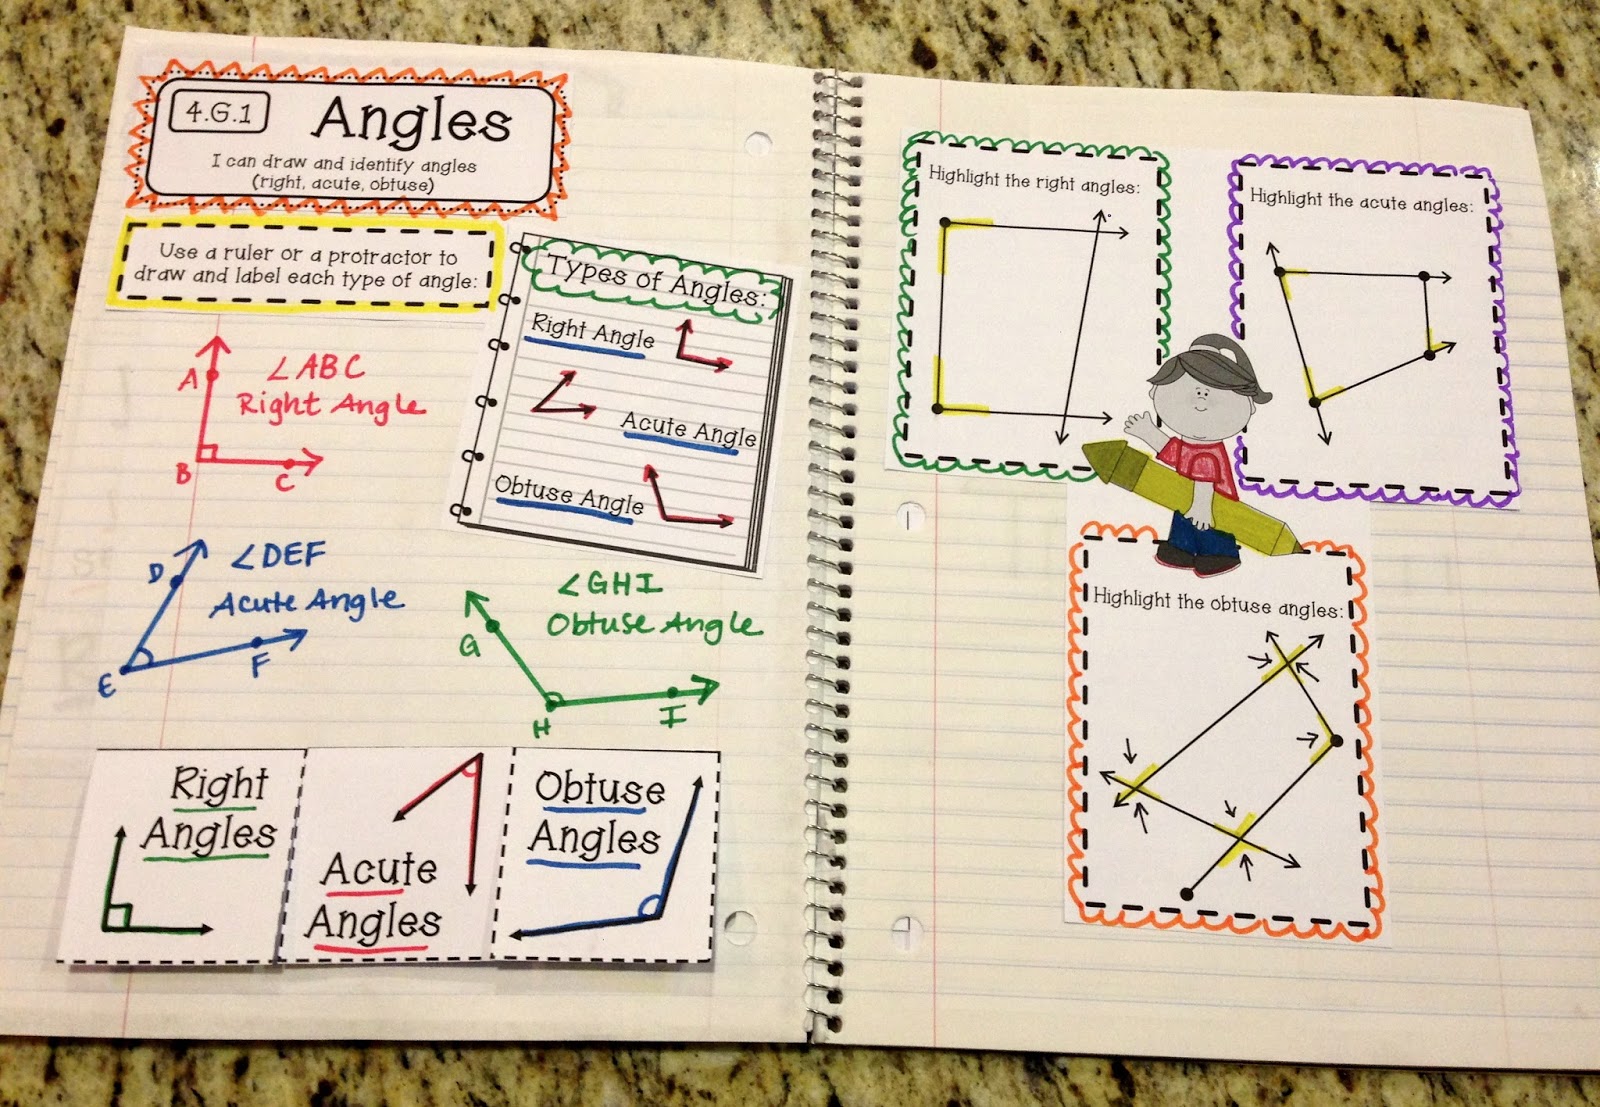 4.G.1
Angles
I can draw and identify angles
(right, acute, obtuse)
Use a ruler or a protractor to
draw and label each type of angle:
Types of Angles:
Right Angle
Acute Angle
Obtuse Angle
A
B
C
∠ABC
Right Angle
D
E
F
∠DEF
Acute Angle
G
H
I
∠GHI
Obtuse Angle
Right
Angles
Acute
Angles
Obtuse
Angles
Highlight the right angles:
Highlight the acute angles:
Highlight the obtuse angles: